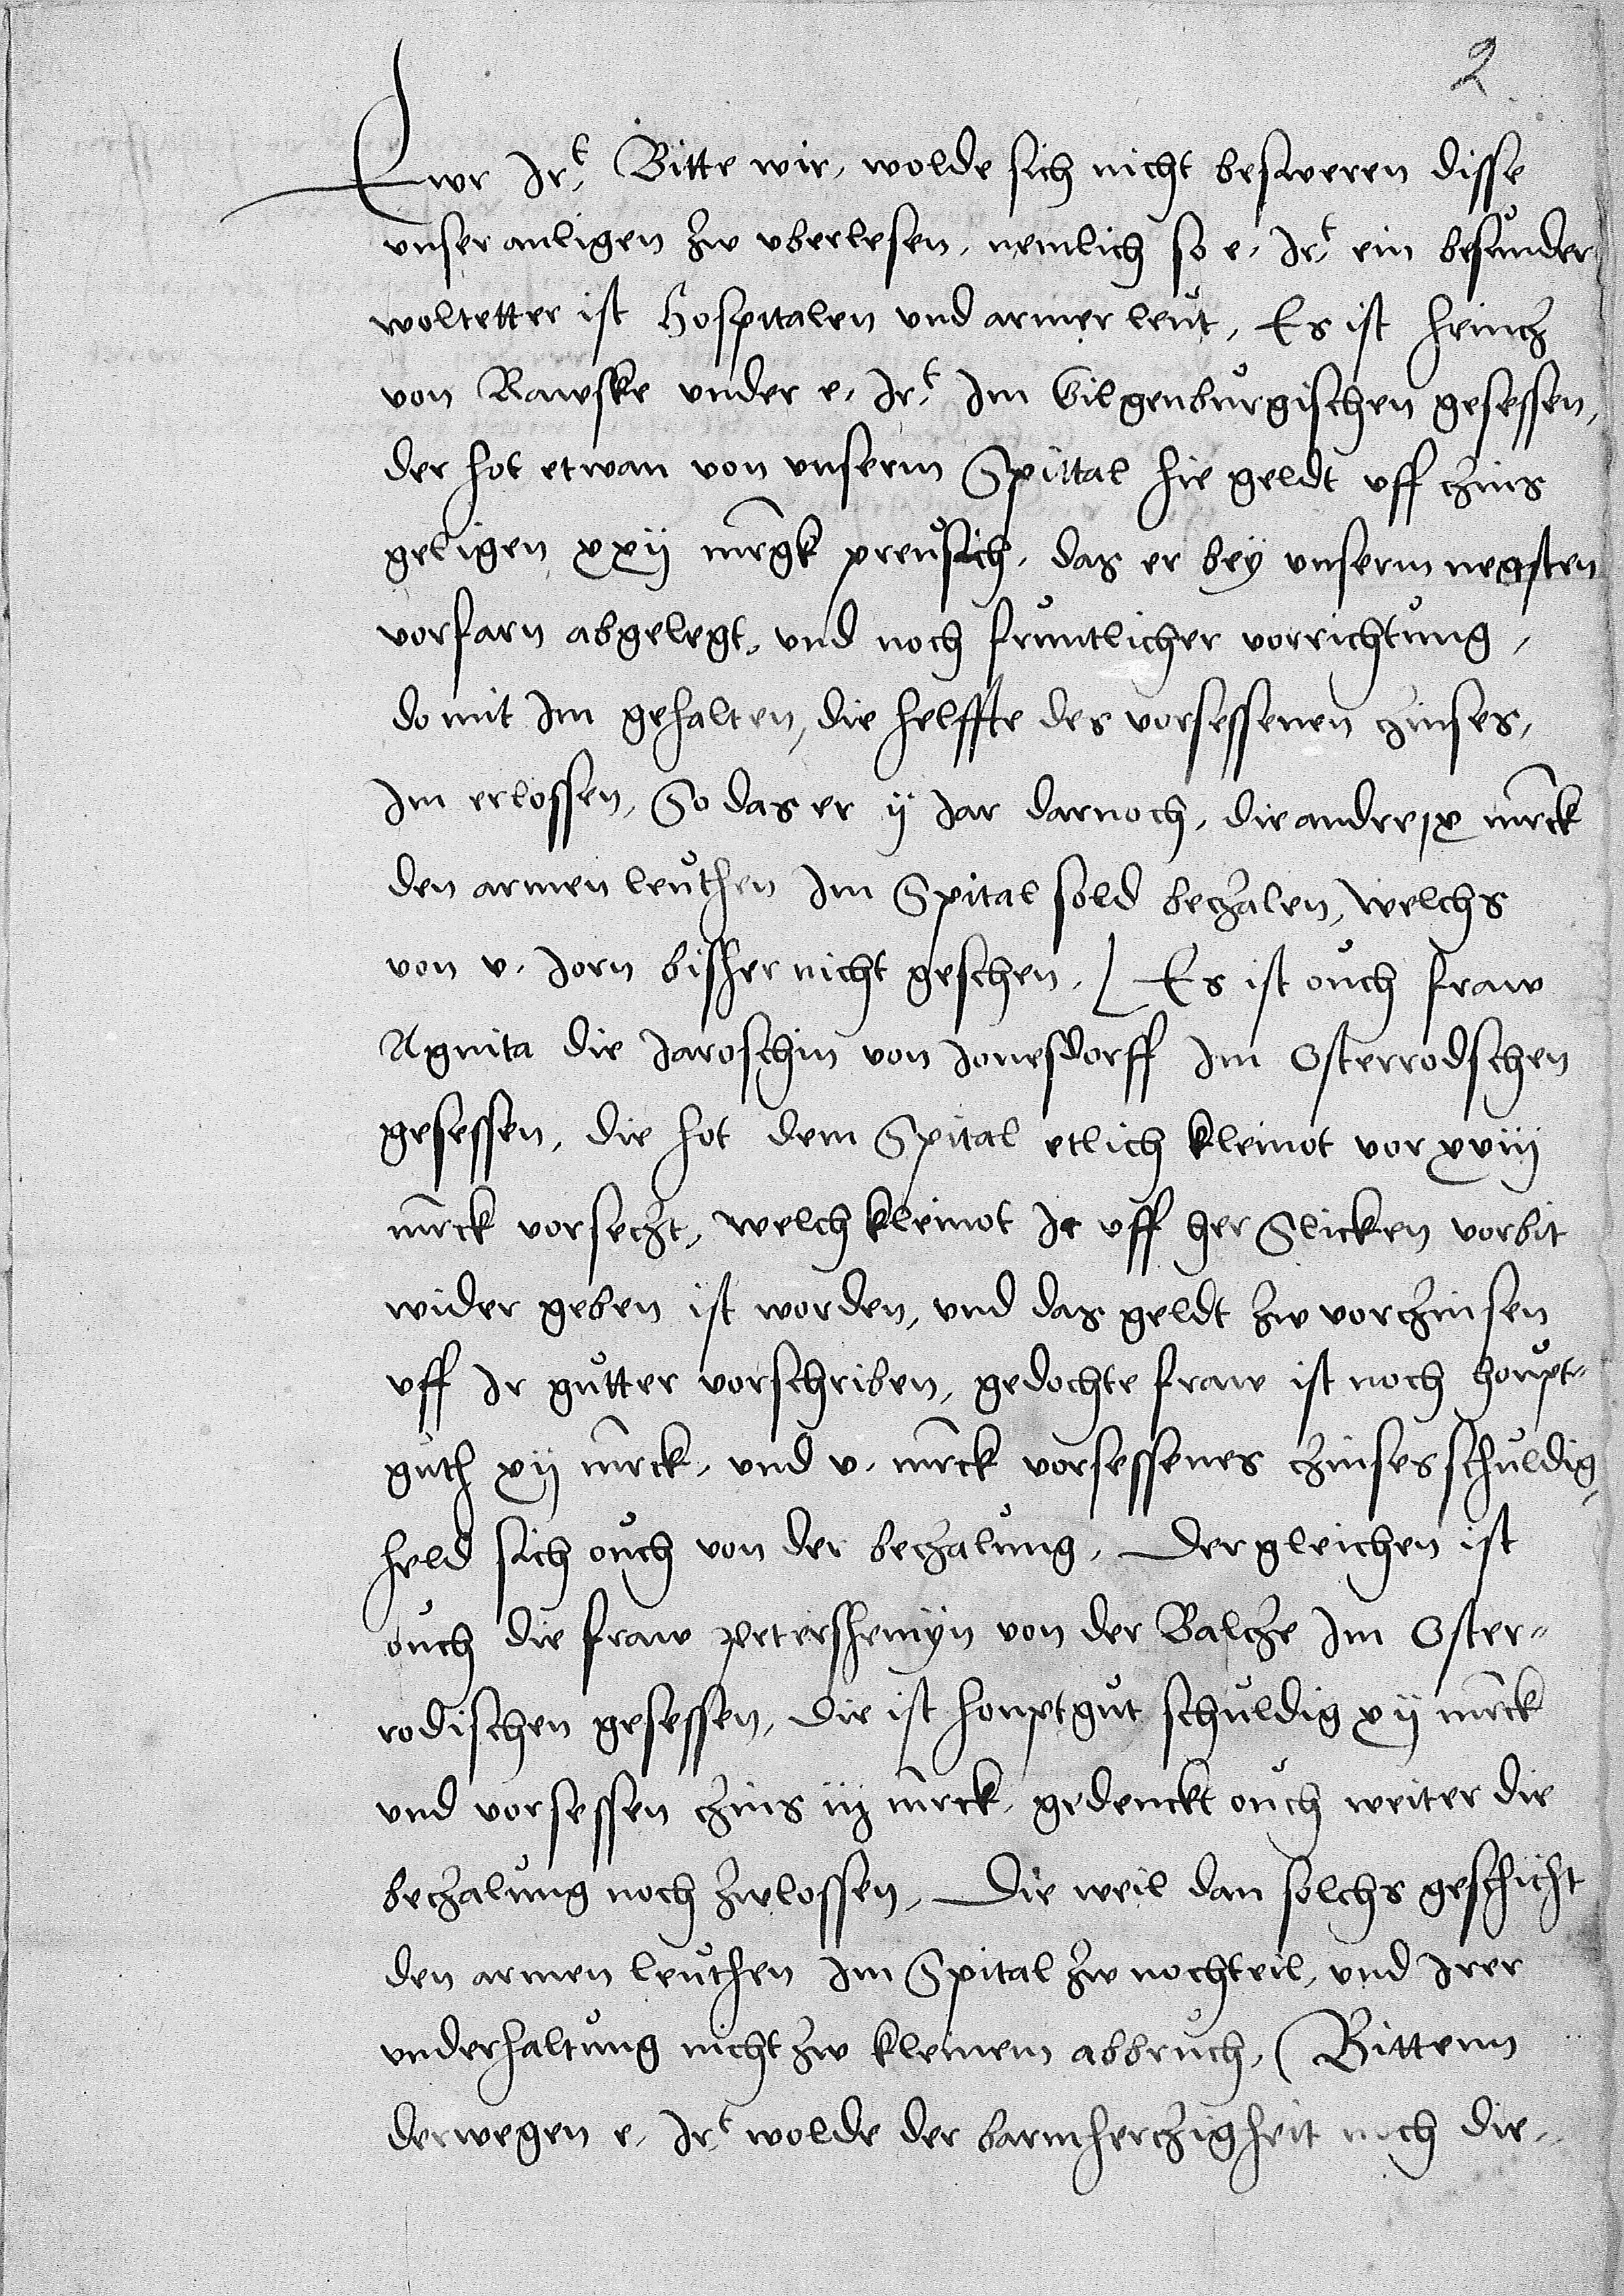 2
Ewr Irt Bitte wir, wolde sich nicht besweren disse
unser anligen zw uberlesen, nemlich so e. Irt ein besunder
woltetter ist Hospitalen und armer leut, Es ist heincz
von Rawske under e. Irt Im Gilgenburgischen gesessen,
der hot etwan von unserm Spittal hie geldt uff czins
geligen xxij mrgk preusch, das er bey unserm negsten
vorfarn abgelegt, und noch fruntlicher vorrichtung,
do mit Im gehalten, die helffte des vorsessenen czinses,
Im erlossen, So das er ij Jar darnoch, die andre ix mrck
den armen leuthen Im Spital sold beczalen, welchs
von v. Jorn bisher nicht geschen. Es ist ouch fraw
Agnita die Jaroschin von Jonesdorff Im Osterrodschen
gesessen, die hot dem Spital etlich kleinot vor xviij
mrck vorseczt, welch kleinot Ir uff her Slicken vorbit
wider geben ist worden, und das geldt zw vorczinsen
uff Ir gutter vorschriben, gedochte fraw ist noch houpt-
guth xij mrck, und v. mrck vorsessenes czinses schuldig,
held sich ouch von der beczalung, Dergleichen ist
ouch die fraw petersheinyn von der Balcze Im Oster-
rodischen gesessen, die ist houptgut schuldig xij mrck
und vorsessen czins iij mrck, gedenckt ouch weiter die
beczalung noch zwlossen, Die weil dan solchs geschicht
den armen leuthen Im Spital zw nochteil, und Irer
underhaltung nicht zw kleinem abbruch, Bittenn
derwegen e. Irt wolde der barmherczigheit noch die-